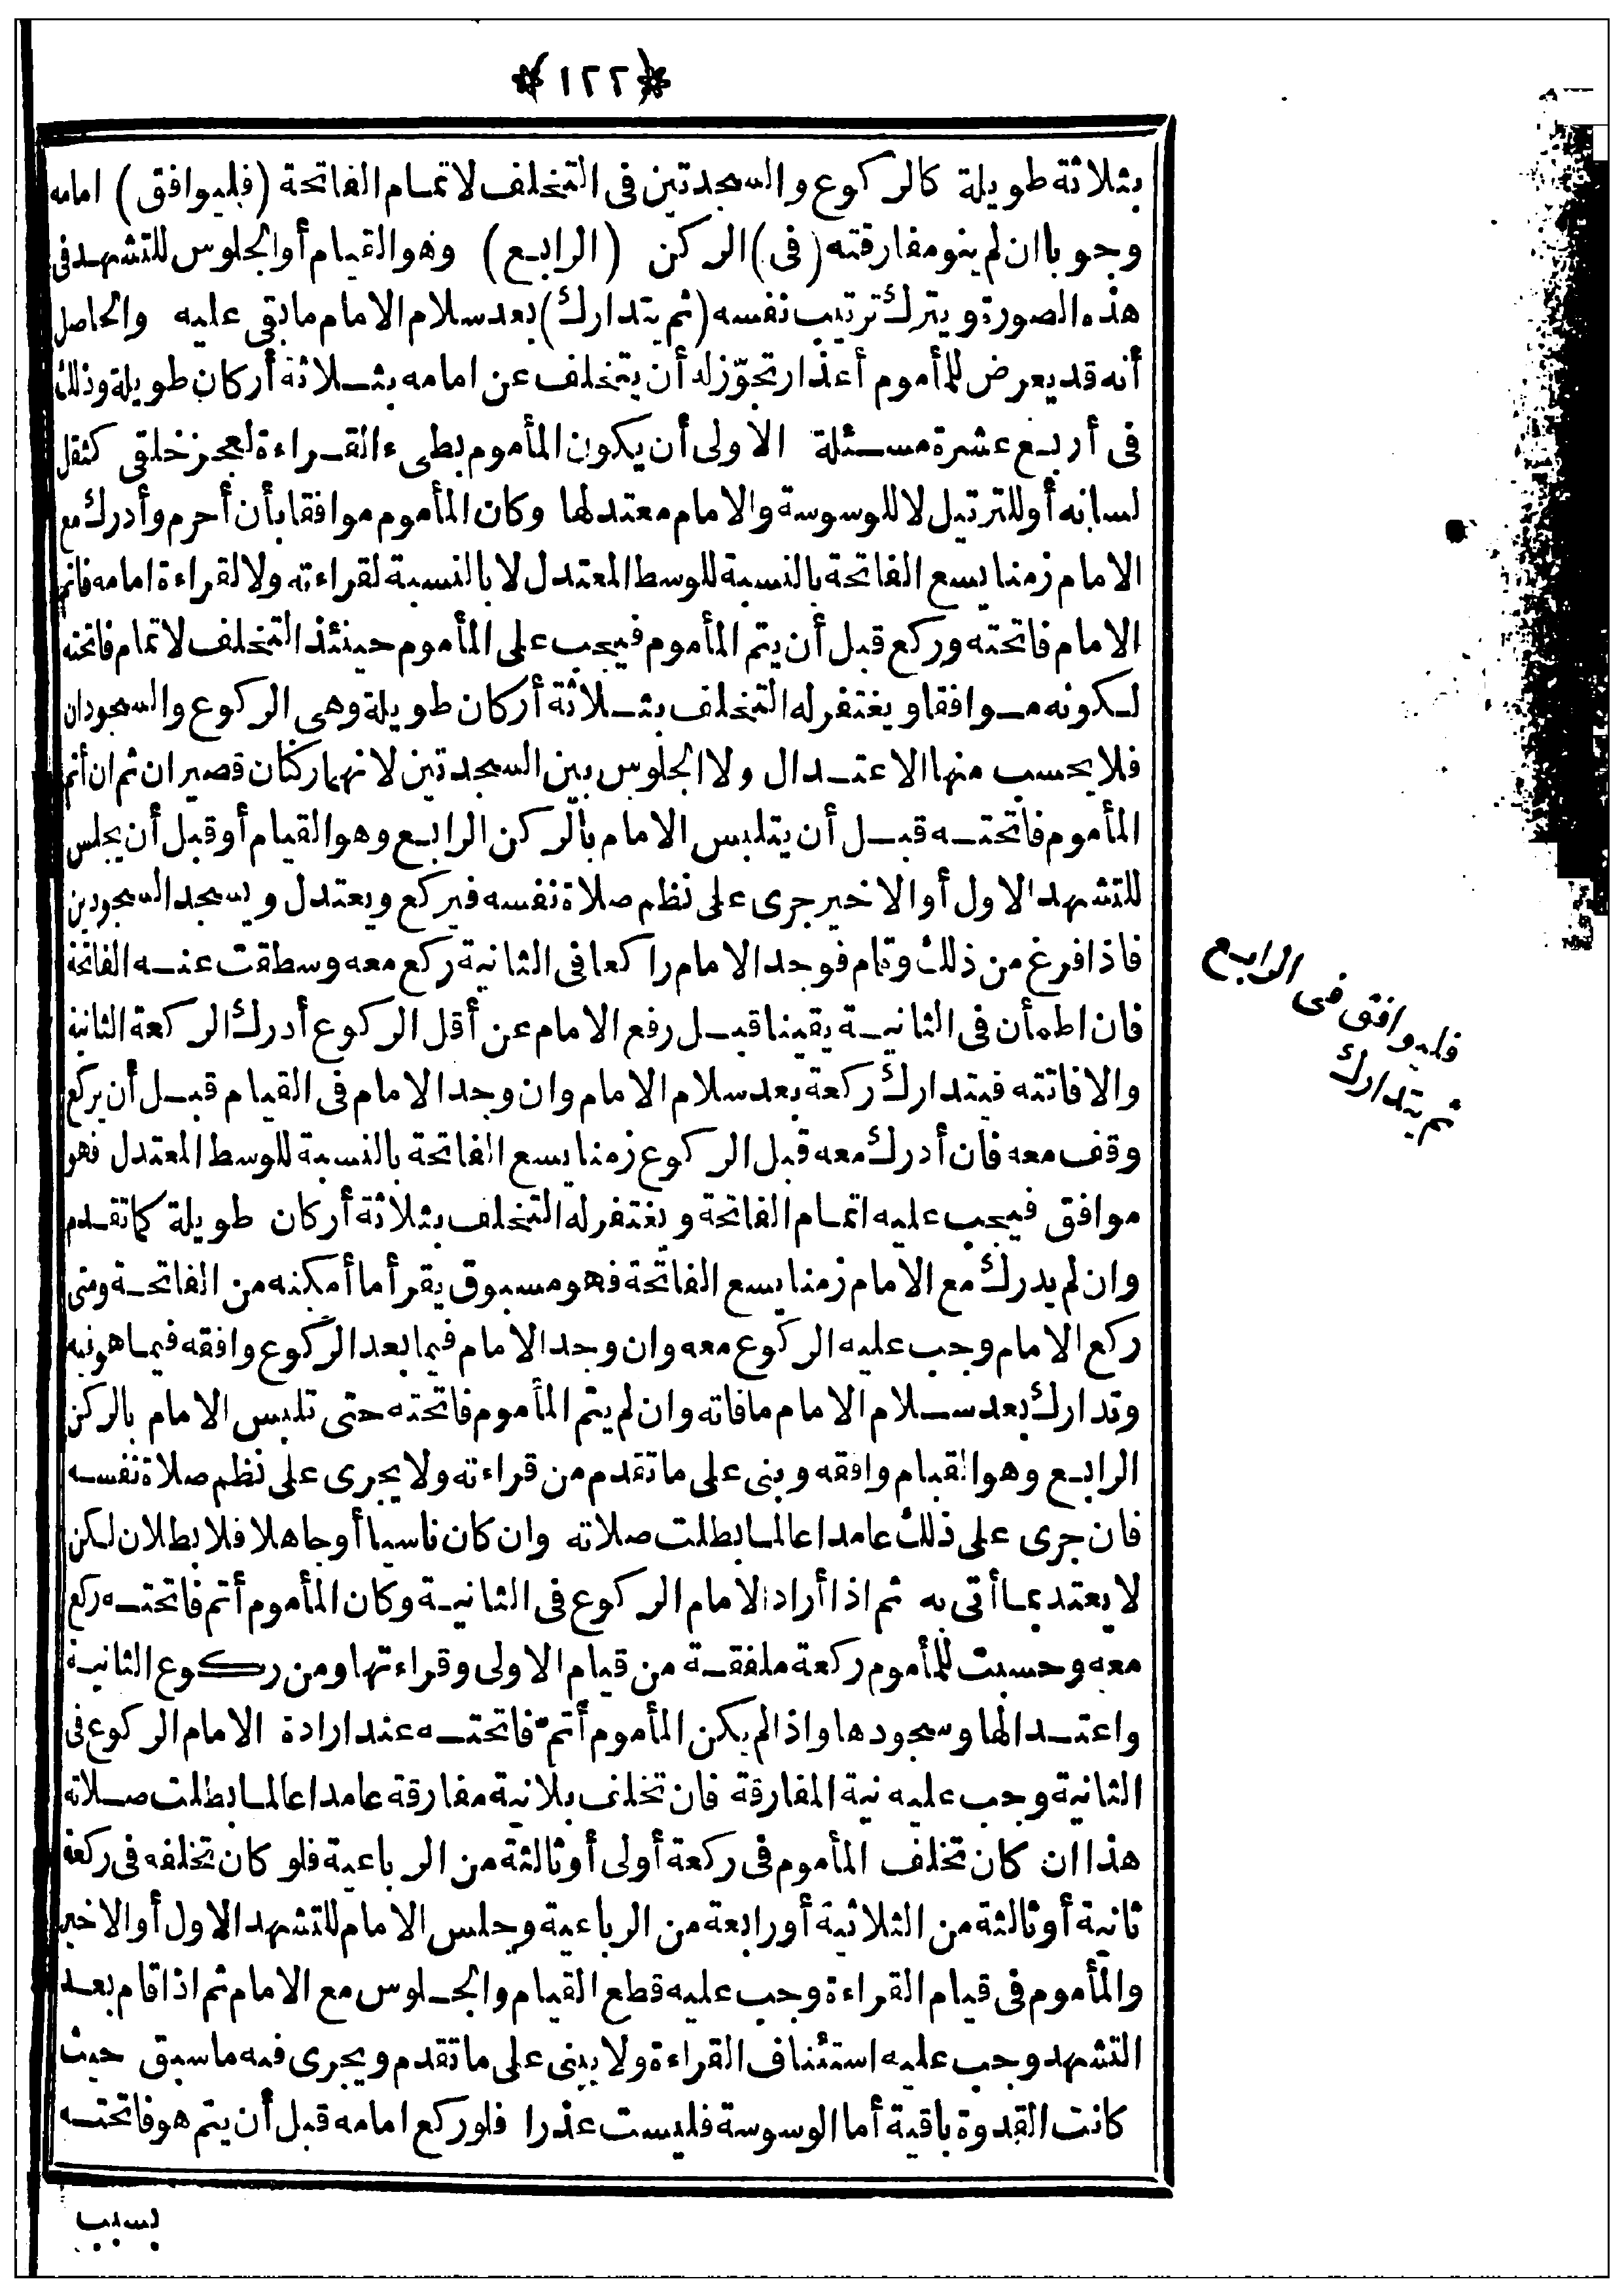 ﴿١٢٢﴾
بثلاثة طويلة كالركوع والسجدتين فى التخلف لاتمام الفاتحة (فليوافق) امامه
وجوبا ان لم ينو مفارقته (فى) الركن (الرابع) وهو القيام أو الجلوس للتشهد فى
هذه الصورة ويترك ترتيب نفسه (ثم يتدارك) بعد سلام الامام ما بقى عليه والحاصل
أنه قد يعرض للمأموم أعذار تجوّز له أن يتخلف عن امامه بثلاثة أركان طويلة وذلك
فى أربع عشرة مسئلة الاولى أن يكون المأموم بطىء القراءة لعجز خلقى كثقل
لسانه أو للترتيل لا للوسوسة والامام معتدلها وكان المأموم موافقا بأن أحرم وأدرك مع
الامام زمنا يسع الفاتحة بالنسبة للوسط المعتدل لا بالنسبة لقراءته ولا لقراءة امامه فاتم
الامام فاتحته وركع قبل أن يتم المأموم فيجب على المأموم حينئذ التخلف لاتمام فاتحته
لكونه موافقا ويغتفر له التخلف بثلاثة أركان طويلة وهى الركوع والسجودان
فلا يحسب منها الاعتدال ولا الجلوس بين السجدتين لانهما ركنان قصيران ثم ان أتم
المأموم فاتحته قبل أن يتلبس الامام بالركن الرابع وهو القيام أو قبل أن يجلس
للتشهد الاول أو الاخير جرى على نظم صلاة نفسه فيركع ويعتدل ويسجد السجودين
فاذا فرغ من ذلك وقام فوجد الامام راكعا فى الثانية ركع معه وسطقت عنه الفاتحة
فان اطمأن فى الثانية يقينا قبل رفع الامام عن أقل الركوع أدرك الركعة الثانية
والا فاتته فيتدارك ركعة بعد سلام الامام وان وجد الامام فى القيام قبل أن يركع
وقف معه فان أدرك معه قبل الركوع زمنا يسع الفاتحة بالنسبة للوسط المعتدل فهو
موافق فيجب عليه اتمام الفاتحة ويغتفر له التخلف بثلاثة أركان طويلة كما تقدم
وان لم يدرك مع الامام زمنا يسع الفاتحة فهو مسبوق يقرأ ما أمكنه من الفاتحة ومتى
ركع الامام وجب عليه الركوع معه وان وجد الامام فيما بعد الركوع وافقه فيما هو فيه
وتدارك بعد سلام الامام ما فاته وان لم يتم المأموم فاتحته حتى تلبس الامام بالركن
الرابع وهو القيام وافقه وبنى على ما تقدم من قراءته ولا يجرى على نظم صلاة نفسه
فان جرى على ذلك عامدا عالما بطلت صلاته وان كان ناسيا أو جاهلا فلا بطلان لكن
لا يعتد بما أتى به ثم اذا أراد الامام الركوع فى الثانية وكان المأموم أتم فاتحته ركع
معه وحسبت للمأموم ركعة ملفقة من قيام الاولى وقراءتها ومن ركوع الثانية
واعتدالها وسجودها واذا لم يكن المأموم أتمّ فاتحته عند ارادة الامام الركوع فى
الثانية وجب عليه نية المفارقة فان تخلف بلا نية مفارقة عامدا عالما بطلت صلاته
هذا ان كان تخلف المأموم فى ركعة أولى أو ثالثة من الرباعية فلو كان تخلفه فى ركعة
ثانية أو ثالثة من الثلاثية أو رابعة من الرباعية وجلس الامام للتشهد الاول أو الاخير
والمأموم فى قيام القراءة وجب عليه قطع القيام والجلوس مع الامام ثم اذا قام بعد
التشهد وجب عليه استئناف القراءة ولا يبنى على ما تقدم ويجرى فيه ما سبق حيث
كانت القدوة باقية أما الوسوسة فليست عذرا فلو ركع امامه قبل أن يتم هو فاتحته
بسبب
فليوافق فى الرابع
ثم يتدارك